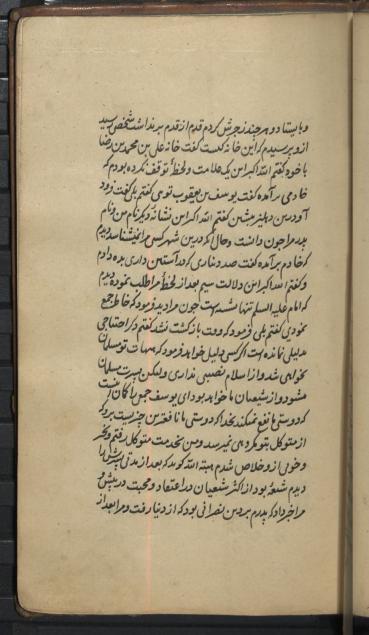 و بایستاد و هر چند زجرش کردم قدم از قدم برنداشت شخصی رسید
ازو پرسیدم که این خانه کیست گفت خانه علی بن محمد بن رضا
با خود گفتم الله اکبر این یک علامت و لحظهٔ توقف نکرده بودم که
خادمی برآمده گفت یوسف بن یعقوب تویی گفتم بلی گفت فرود
آ و درین دهلیز بنشین گفتم الله اکبر این نشانهٔ دیگر نام من و نام
پدر مرا چون دانست و حال آنکه درین شهر کسی مرا نمیشناسد دیدم
که خادم برآمده گفت صد دیناری که در آستین داری بده دادم
و گفتم الله اکبر این دلالت سیم بعد از لحظهٔ مرا طلب نموده دیدم
که امام علیه السلم تنها نشسته است چون مرا دید فرمود که خاطر جمع
نمودی گفتم بلی فرمود که وقت بازگشت نشد گفتم دیگر احتیاجی
بدلیلی نمانده است اگر کسی دلیل خواهد فرمود که هیهات تو مسلمان
نخواهی شد و از اسلام نصیبی نداری و لیکن پسرت مسلمان
میشود و از شیعیان ما خواهد بود ای یوسف جمعی را گمان اینست
که دوستی ما نفع نمیکند بخدا که دوستی ما نافعترین چیزیست برو که
از متوکل بتو مکروهی نمیرسد و من بخدمت متوکل رفتم و بخیر
و خوبی ازو خلاص شدم هبته الله گوید که بعد از مدتی پسرش را
دیدم شیعه بود از اکثر شیعیان در اعتقاد و محبت در پیش و
مرا خبر داد که پدرم بر دین نصرانی بود که از دنیا رفت و مرا بعد از